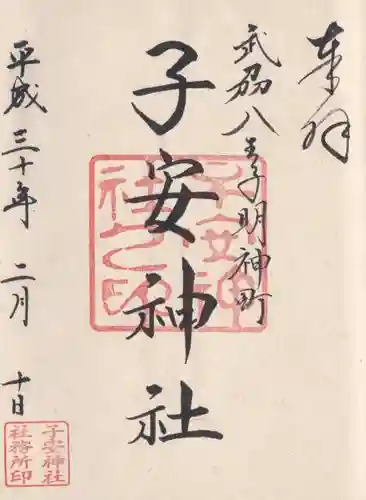 奉拝
武州八王子明神町
子安神社
子安神社之印
平成三十年 二月 十日
子安神社
社務所印